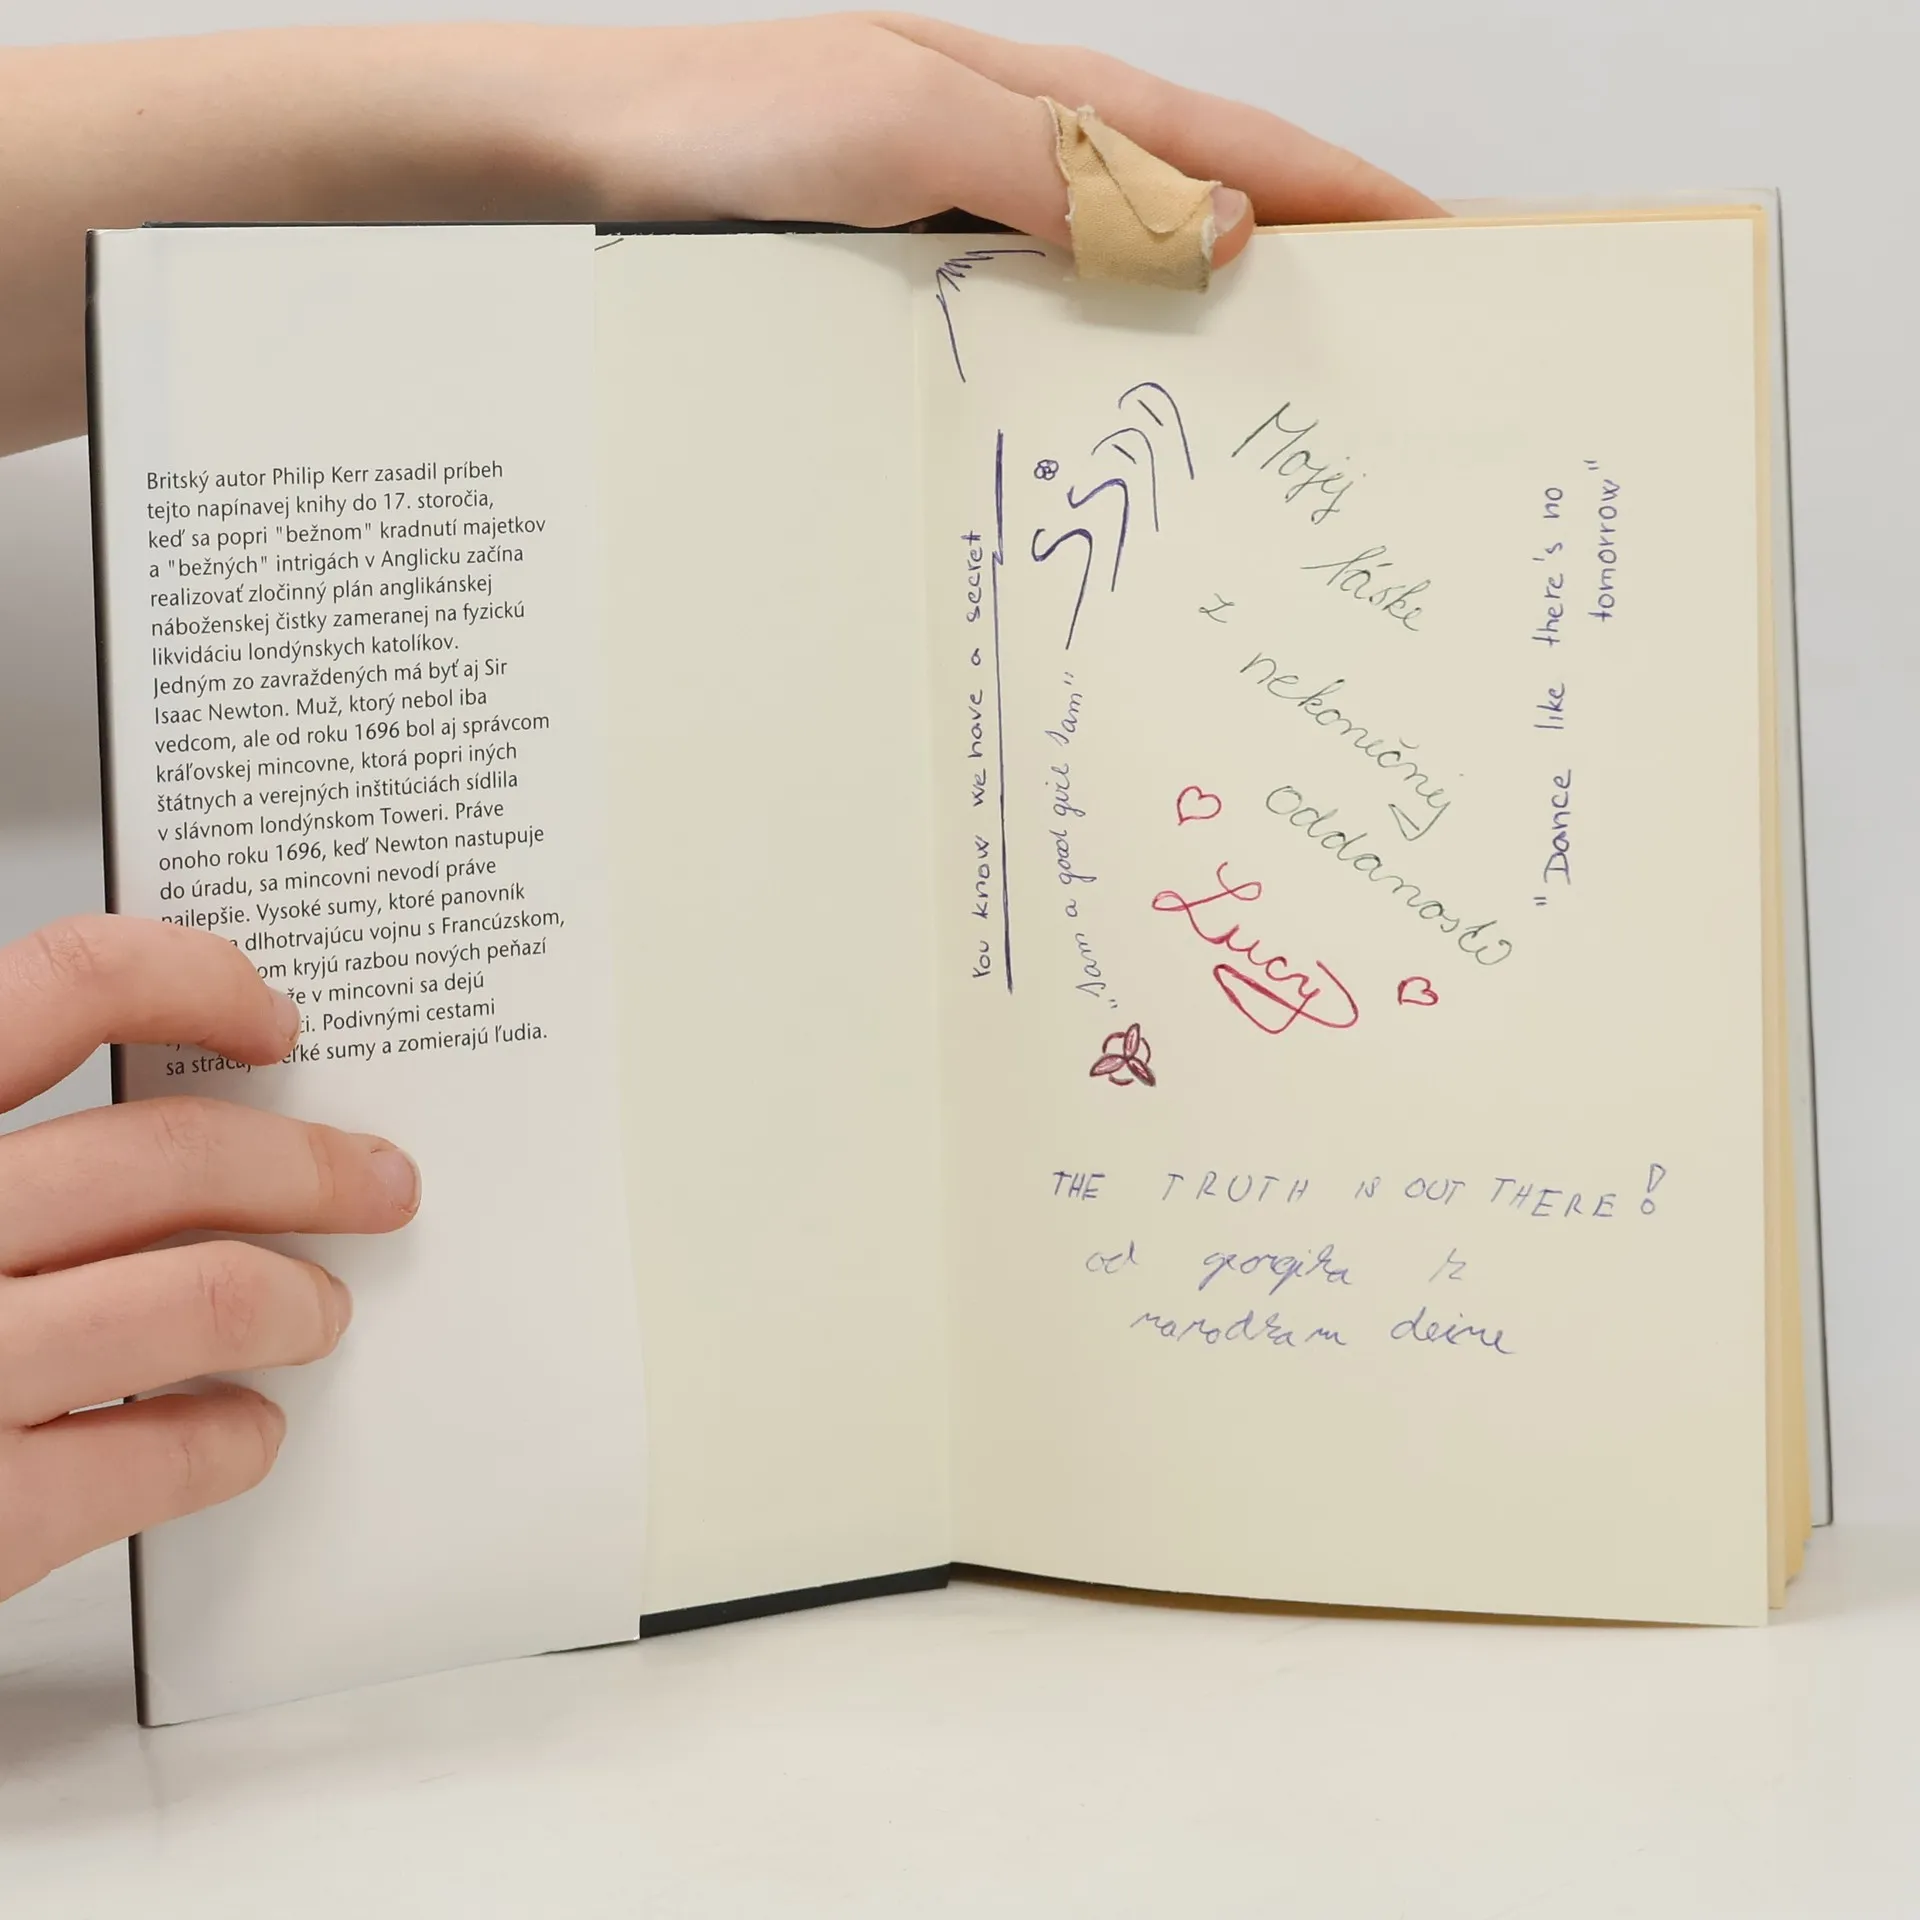 Britský autor Philip Kerr zasadil príbeh
tejto napínavej knihy do 17. storočia,
keď sa popri "bežnom" kradnutí majetkov
a "bežných" intrigách v Anglicku začína
realizovať zločinný plán anglikánskej
náboženskej čistky zameranej na fyzickú
likvidáciu londýnskych katolíkov.
Jedným zo zavraždených má byť aj Sir
Isaac Newton. Muž, ktorý nebol iba
vedcom, ale od roku 1696 bol aj správcom
kráľovskej mincovne, ktorá popri iných
štátnych a verejných inštitúciách sídlila
v slávnom londýnskom Toweri. Práve
onoho roku 1696, keď Newton nastupuje
do úradu, sa mincovni nevodí práve
najlepšie. Vysoké sumy, ktoré panovník
dlhotrvajúcu vojnu s Francúzskom,
kryjú razbou nových peňazí
že v mincovni sa dejú
Podivnými cestami
sa sumy a zomierajú ľudia.
You know we have a secret
"Sam a good girl Sam"
Mojej
láske
z
nekonečnej
oddanosti
Lucy
"Dance like there's no
tomorrow"
THE TRUTH IS OUT THERE!
od georgika k
deine